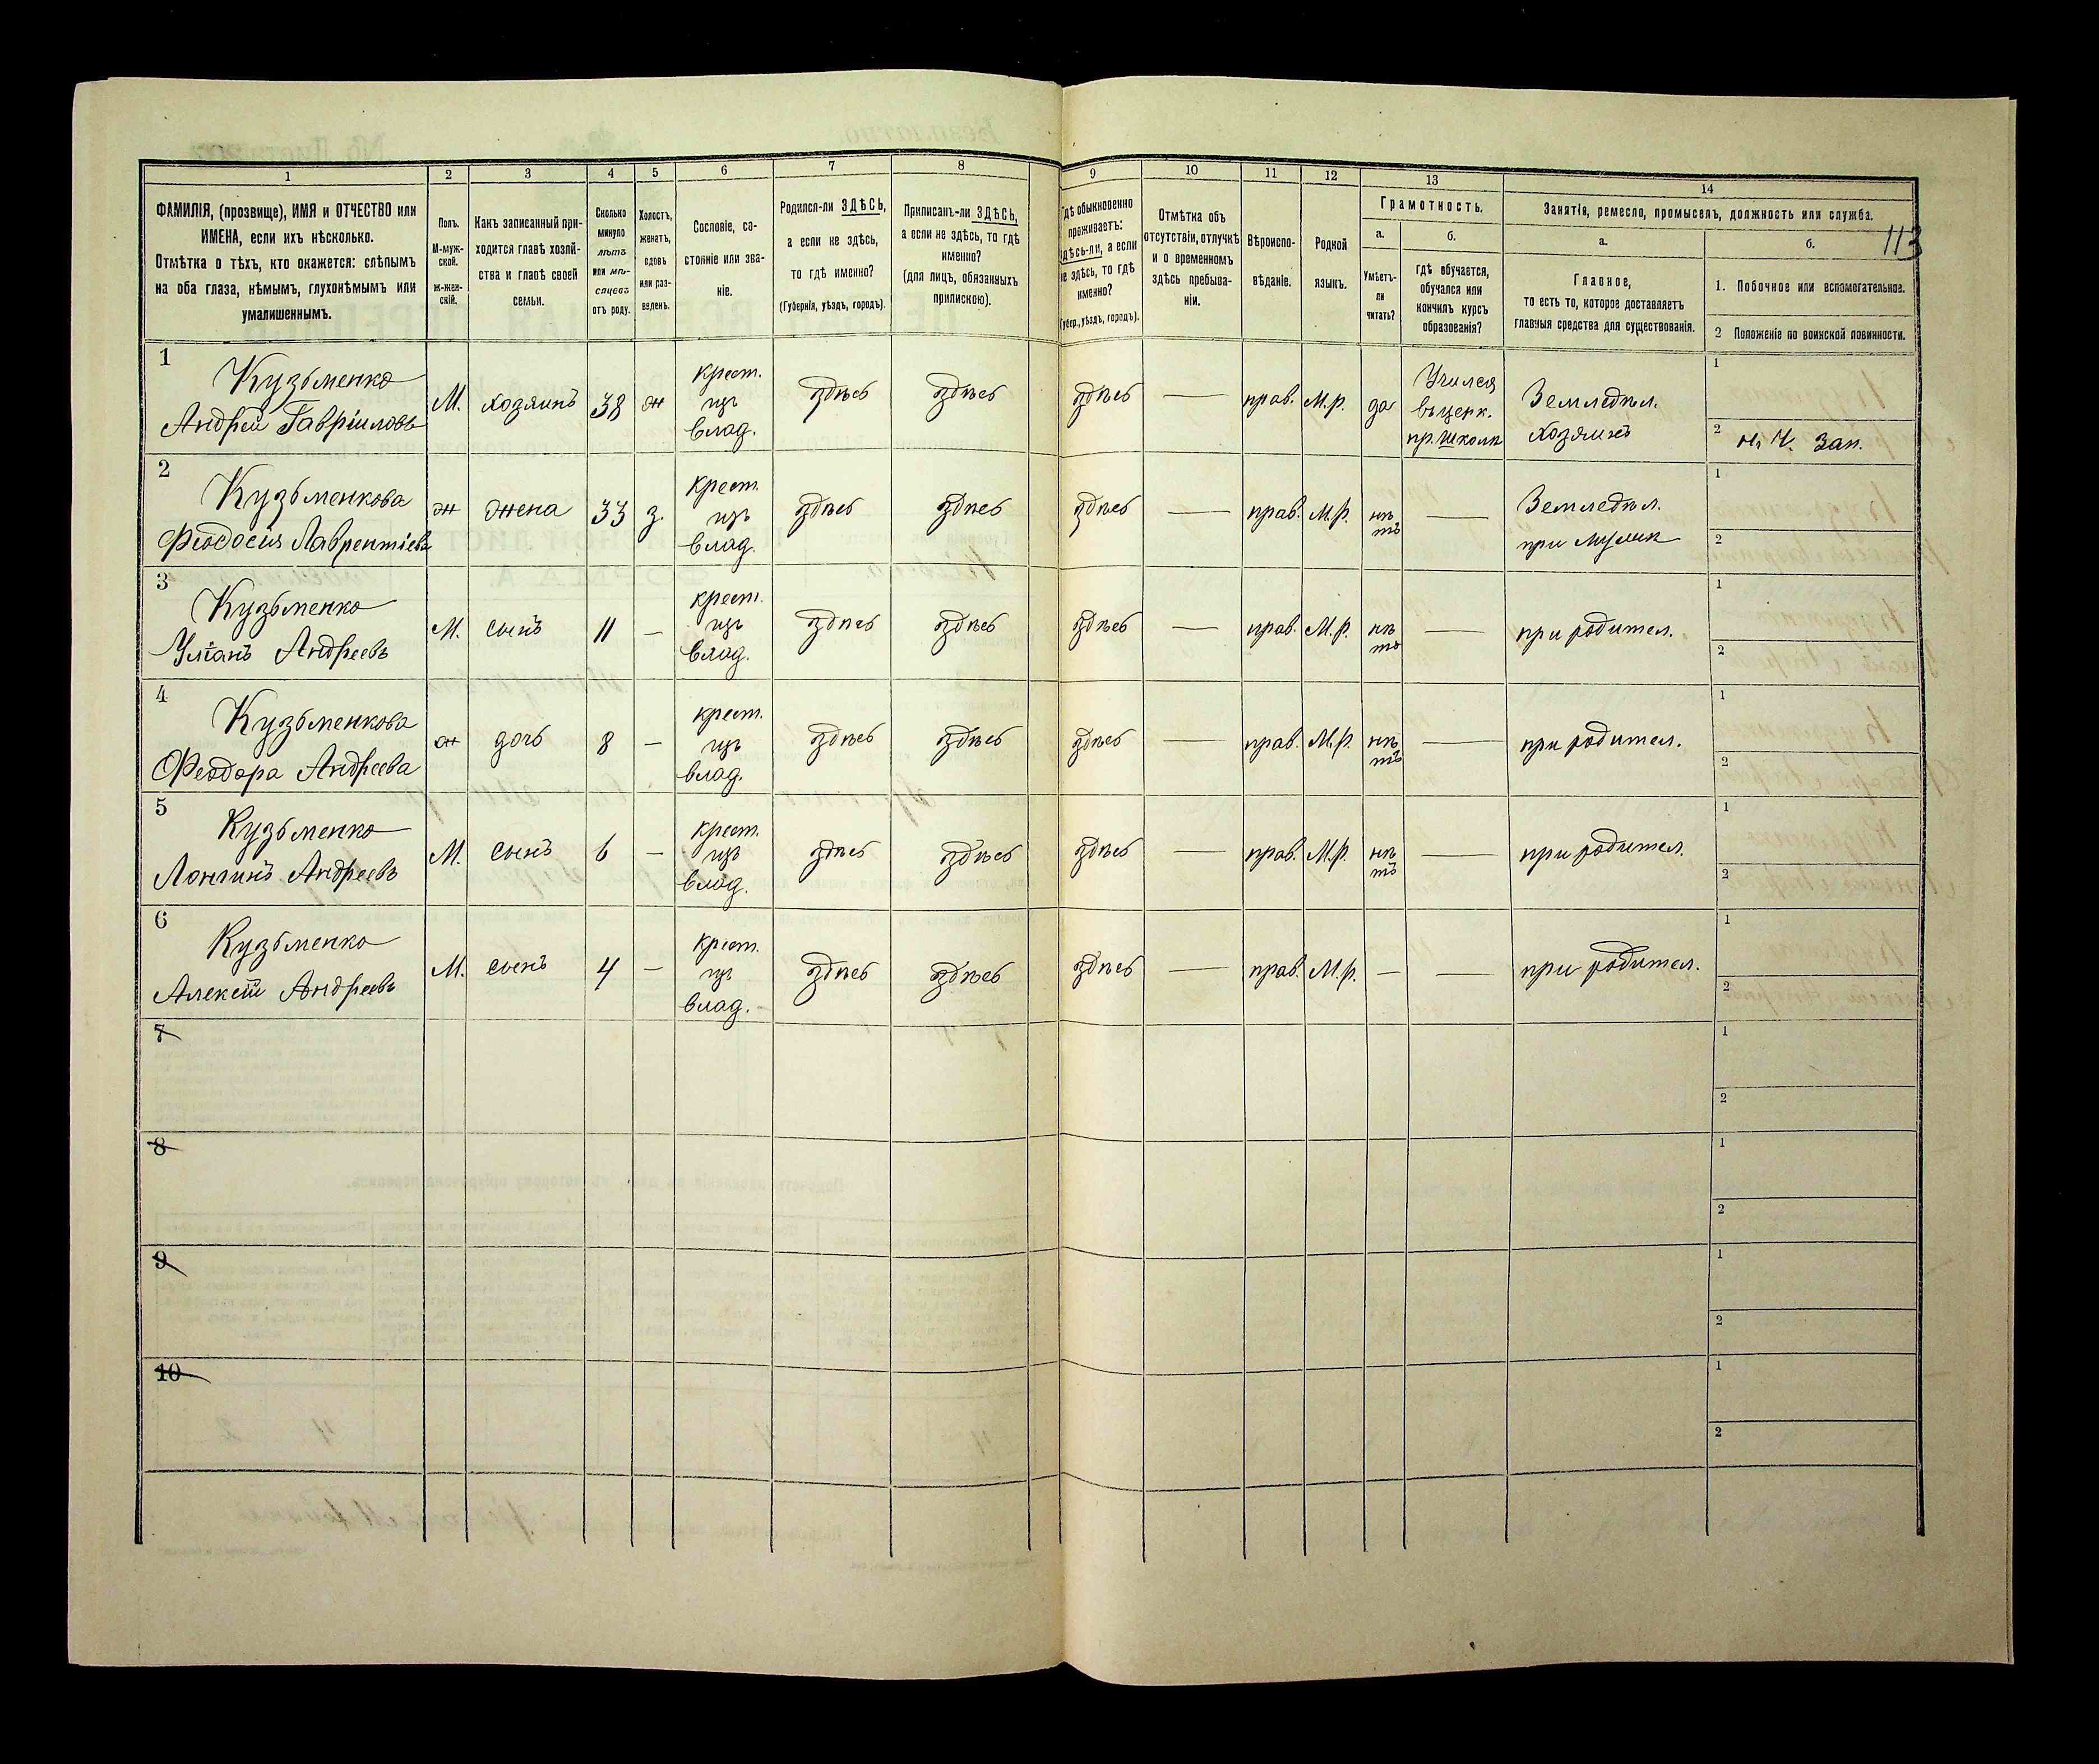 113
1 2 3 4 5 6 7 8 9 10 11 12 13 14
ФАМИЛІЯ, (прозвище), ИМЯ и ОТЧЕСТВО или
ИМЕНА, если ихъ нѣсколько.
Отмѣтка о тѣхъ, кто окажется: слѣпымъ
на оба глаза, нѣмымъ, глухонѣмымъ или
умалишеннымъ.
Полъ.
М-муж-
ской.
Ж-жен-
скій.
Какъ записанный при-
ходится главѣ хозяй-
ства и главѣ своей
семьи.
Сколько
минуло
лѣтъ
или мѣ-
сяцевъ
отъ роду.
Холостъ,
женатъ,
вдовъ
или раз-
веденъ.
Сословіе, со-
стояніе или зва-
ніе.
Родился-ли ЗДѢСЬ,
а если не здѣсь,
то гдѣ именно?
(Губернія, уѣздъ, городъ).
Приписанъ-ли ЗДѢСЬ,
а если не здѣсь, то гдѣ
именно?
(для лицъ, обязанныхъ
припискою).
Гдѣ обыкновенно
проживаетъ:
здѣсь-ли, а если
не здѣсь, то гдѣ
именно?
(Губер., уѣздъ, городъ).
Отмѣтка объ
отсутствіи, отлучкѣ
и о временномъ
здѣсь пребыва-
ніи.
Вѣроиспо-
вѣданіе.
Родной
языкъ.
Грамотность.
а.
Умѣетъ-
ли
читать?
б.
гдѣ обучается,
обучался или
кончилъ курсъ
образованія?
Занятія, ремесло, промыселъ, должность или служба.
а.
Главное,
то есть то, которое доставляетъ
главныя средства для существованія.
б.
1. Побочное или вспомогательное.
2 Положеніе по воинской повинности.
1
Кузьменко
Андрей Гавріиловъ
М. хозяинъ 38 ж
крест.
изъ
влад.
здѣсь здѣсь здѣсь — прав. М.р. да
Учился
въ церк.
пр. школѣ
Земледѣл.
хозяинъ
1
2 н. ч. зап.
2
Кузьменкова
Феодосія Лаврентіева
ж жена 33 з.
крест.
изъ
влад.
здѣсь здѣсь здѣсь — прав. М.р.
нѣ
тъ
—
Земледѣл.
при мужѣ
1
2
3
Кузьменко
Уліанъ Андреевъ
М. сынъ 11 —
крест.
изъ
влад.
здѣсь здѣсь здѣсь — прав. М.р.
нѣ
тъ
— при родител.
1
2
4
Кузьменкова
Феодора Андреева
ж дочь 8 —
крест.
изъ
влад.
здѣсь здѣсь здѣсь — прав. М.р.
нѣ
тъ
— при родител.
1
2
5
Кузьменко
Лонгинъ Андреевъ
М. сынъ 6 —
крест.
изъ
влад.
здѣсь здѣсь здѣсь — прав. М.р.
нѣ
тъ
— при родител.
1
2
6
Кузьменко
Алексѣй Андреевъ
М. сынъ 4 —
крест.
изъ
влад.
здѣсь здѣсь здѣсь — прав. М.р. — — при родител.
1
2
7
1
2
8
1
2
9
1
2
10
1
2